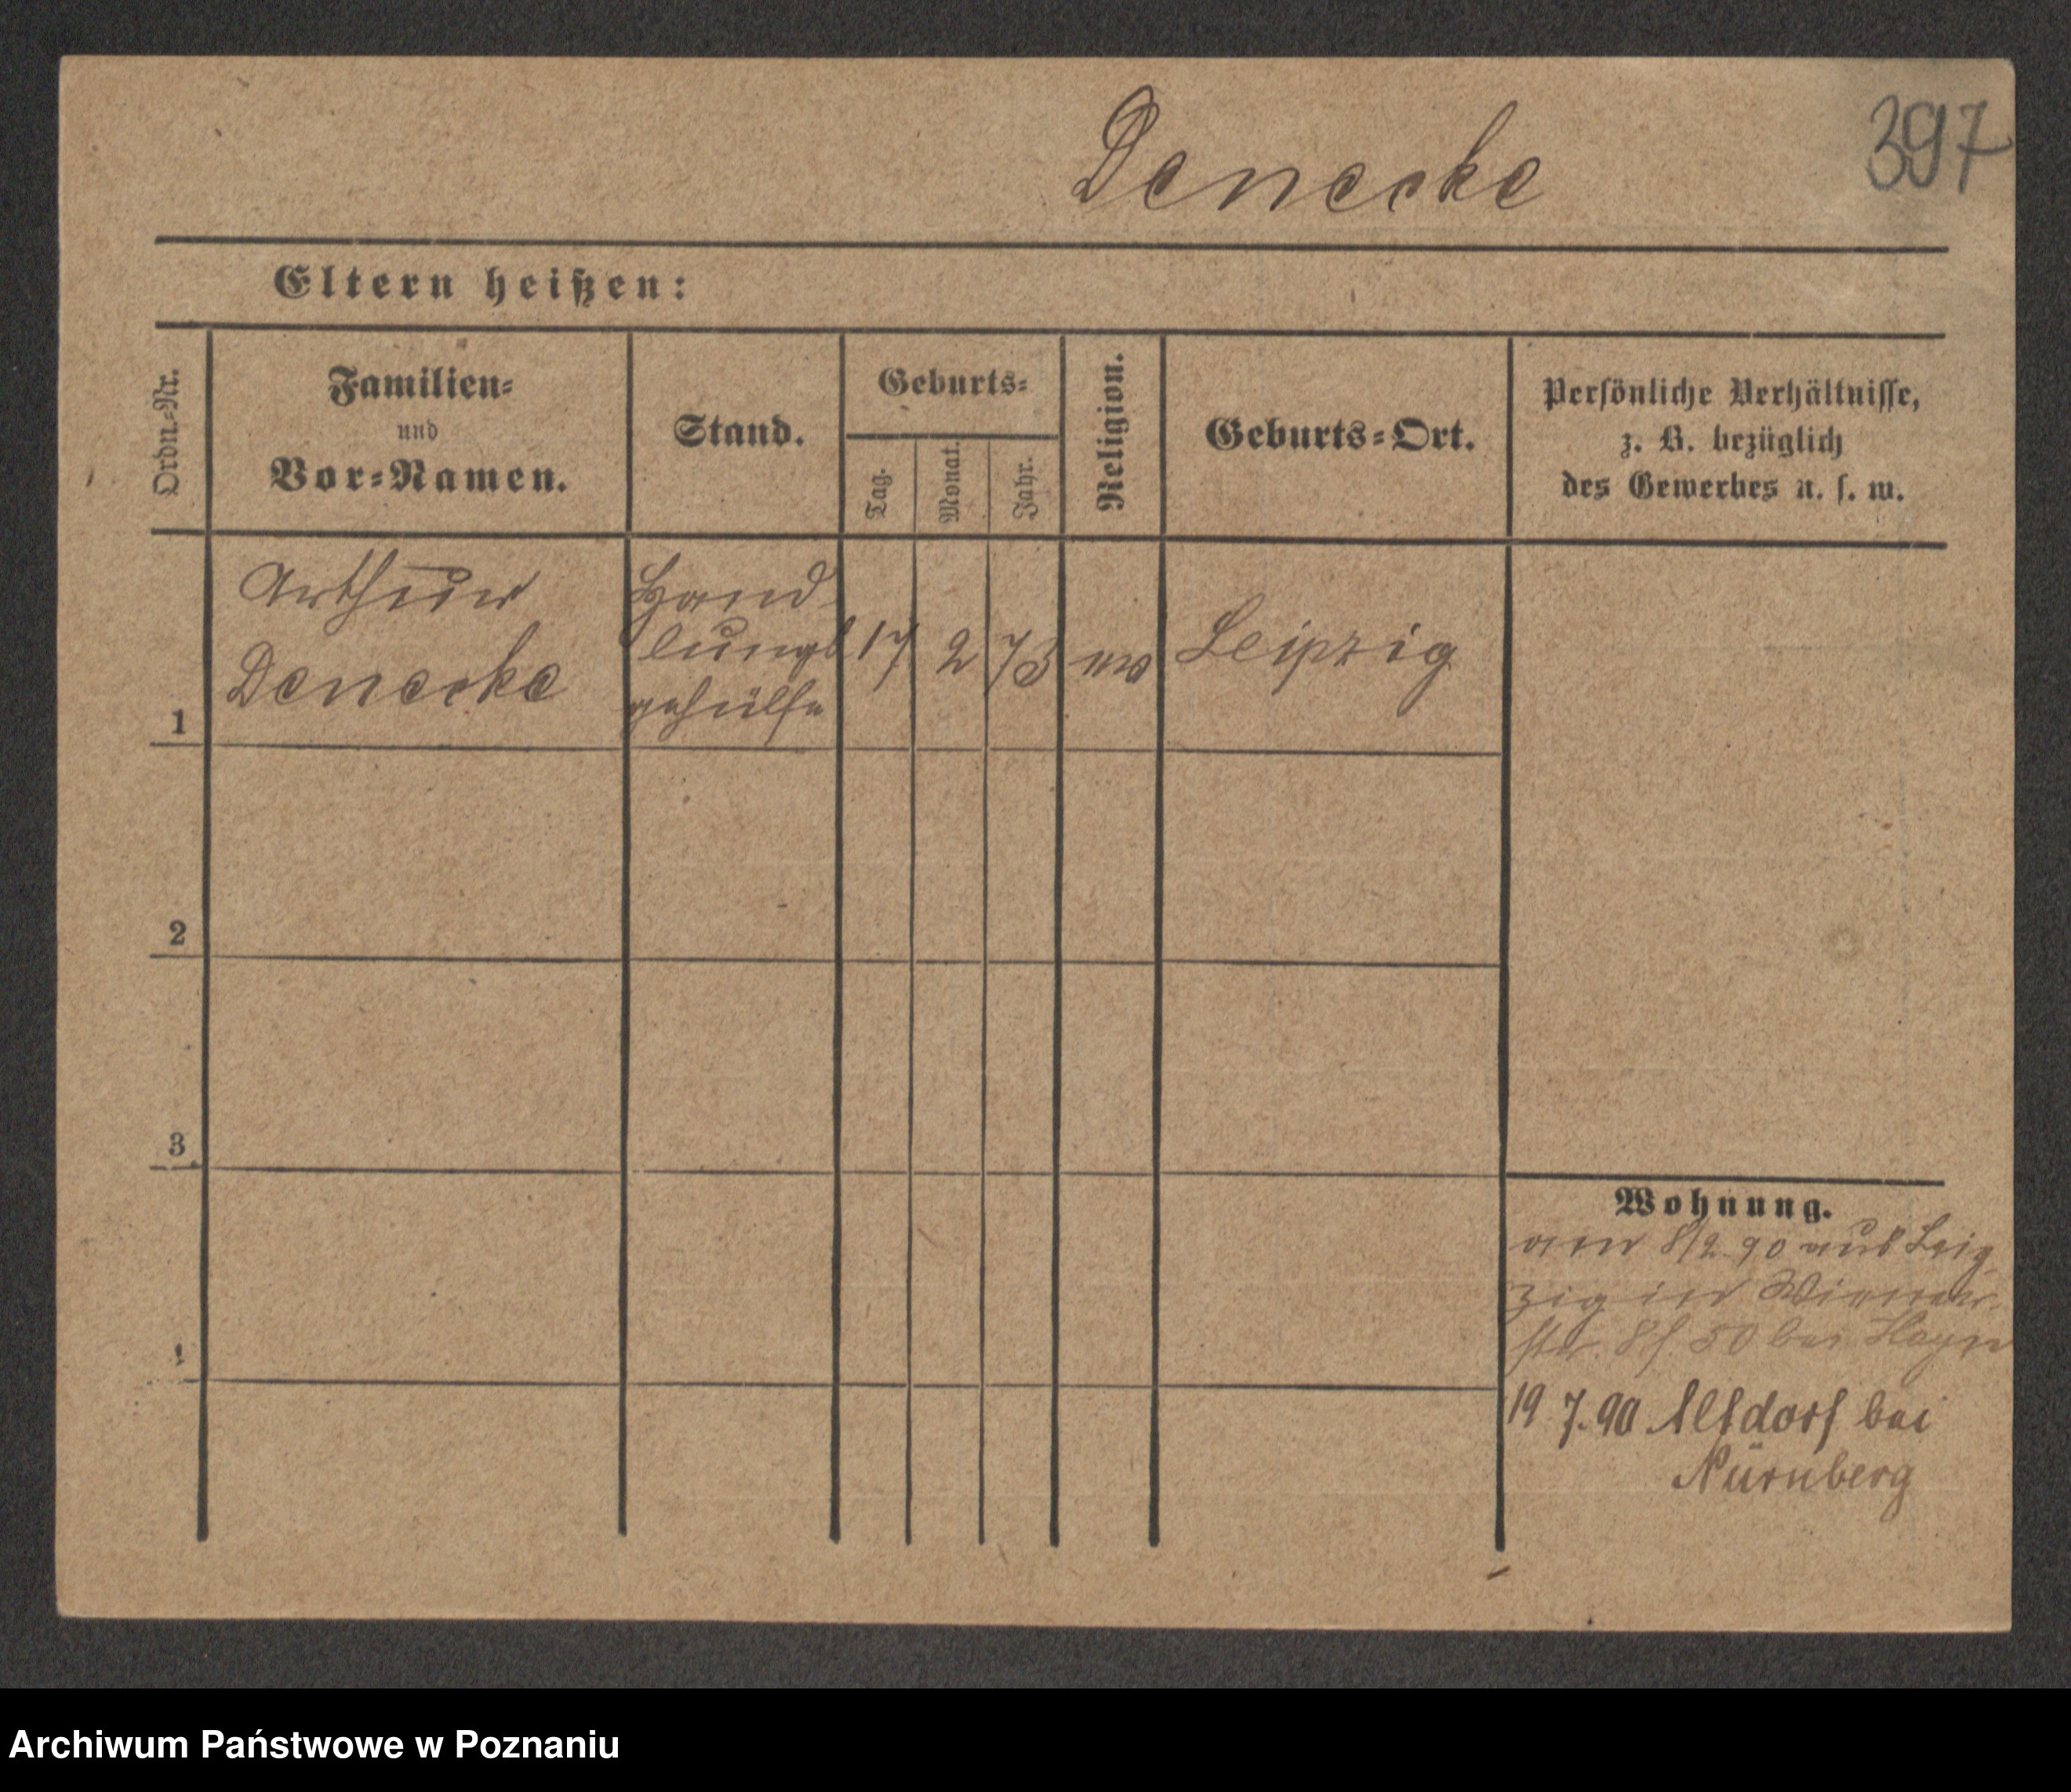 397
Denecke
Eltern heißen:
Ordn.-Nr.
Familien-
und
Vor-Namen.
Stand.
Geburts-
Tag.
Monat.
Jahr.
Religion.
Geburts-Ort.
Persönliche Verhältnisse,
z. B. bezüglich
des Gewerbes u. s. w.
1
Arthur
Denecke
Hand-
lungs
gehülfe
17
2
73
ev
Leipzig
2
3
Wohnung.
am 8/2 90 aus Leip
zig in Wiener
str. 50 bei
19 7. 90 Altdorf bei
Nürnberg
Archiwum Państwowe w Poznaniu